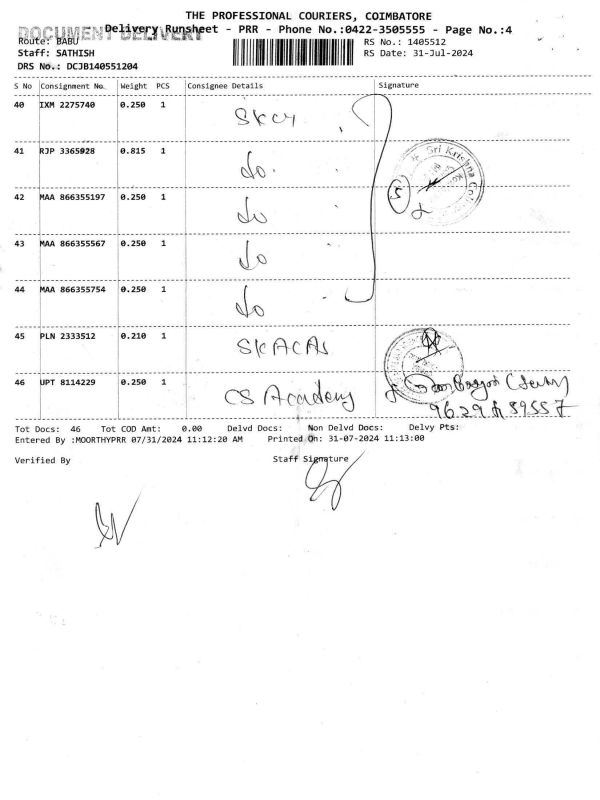 THE PROFESSIONAL COURIERS, COIMBATORE
DOCUMENT DELIVERY
Delivery Runsheet - PRR - Phone No.:0422-3505555 - Page No.:4
Route: BABU RS No.: 1405512
Staff: SATHISH RS Date: 31-Jul-2024
DRS No.: DCJB140551204
S No Consignment No. Weight PCS Consignee Details Signature
40 IXM 2275740 0.250 1
41 RJP 3365928 0.815 1 do
Sri Krishna
42 MAA 866355197 0.250 1 do 5
43 MAA 866355567 0.250 1 do
44 MAA 866355754 0.250 1 do
45 PLN 2333512 0.210 1 SKACAS
46 UPT 8114229 0.250 1 CS Academy
Tot Docs: 46 Tot COD Amt: 0.00 Delvd Docs: Non Delvd Docs: Delvy Pts:
Entered By :MOORTHYPRR 07/31/2024 11:12:20 AM Printed On: 31-07-2024 11:13:00
Verified By Staff Signature